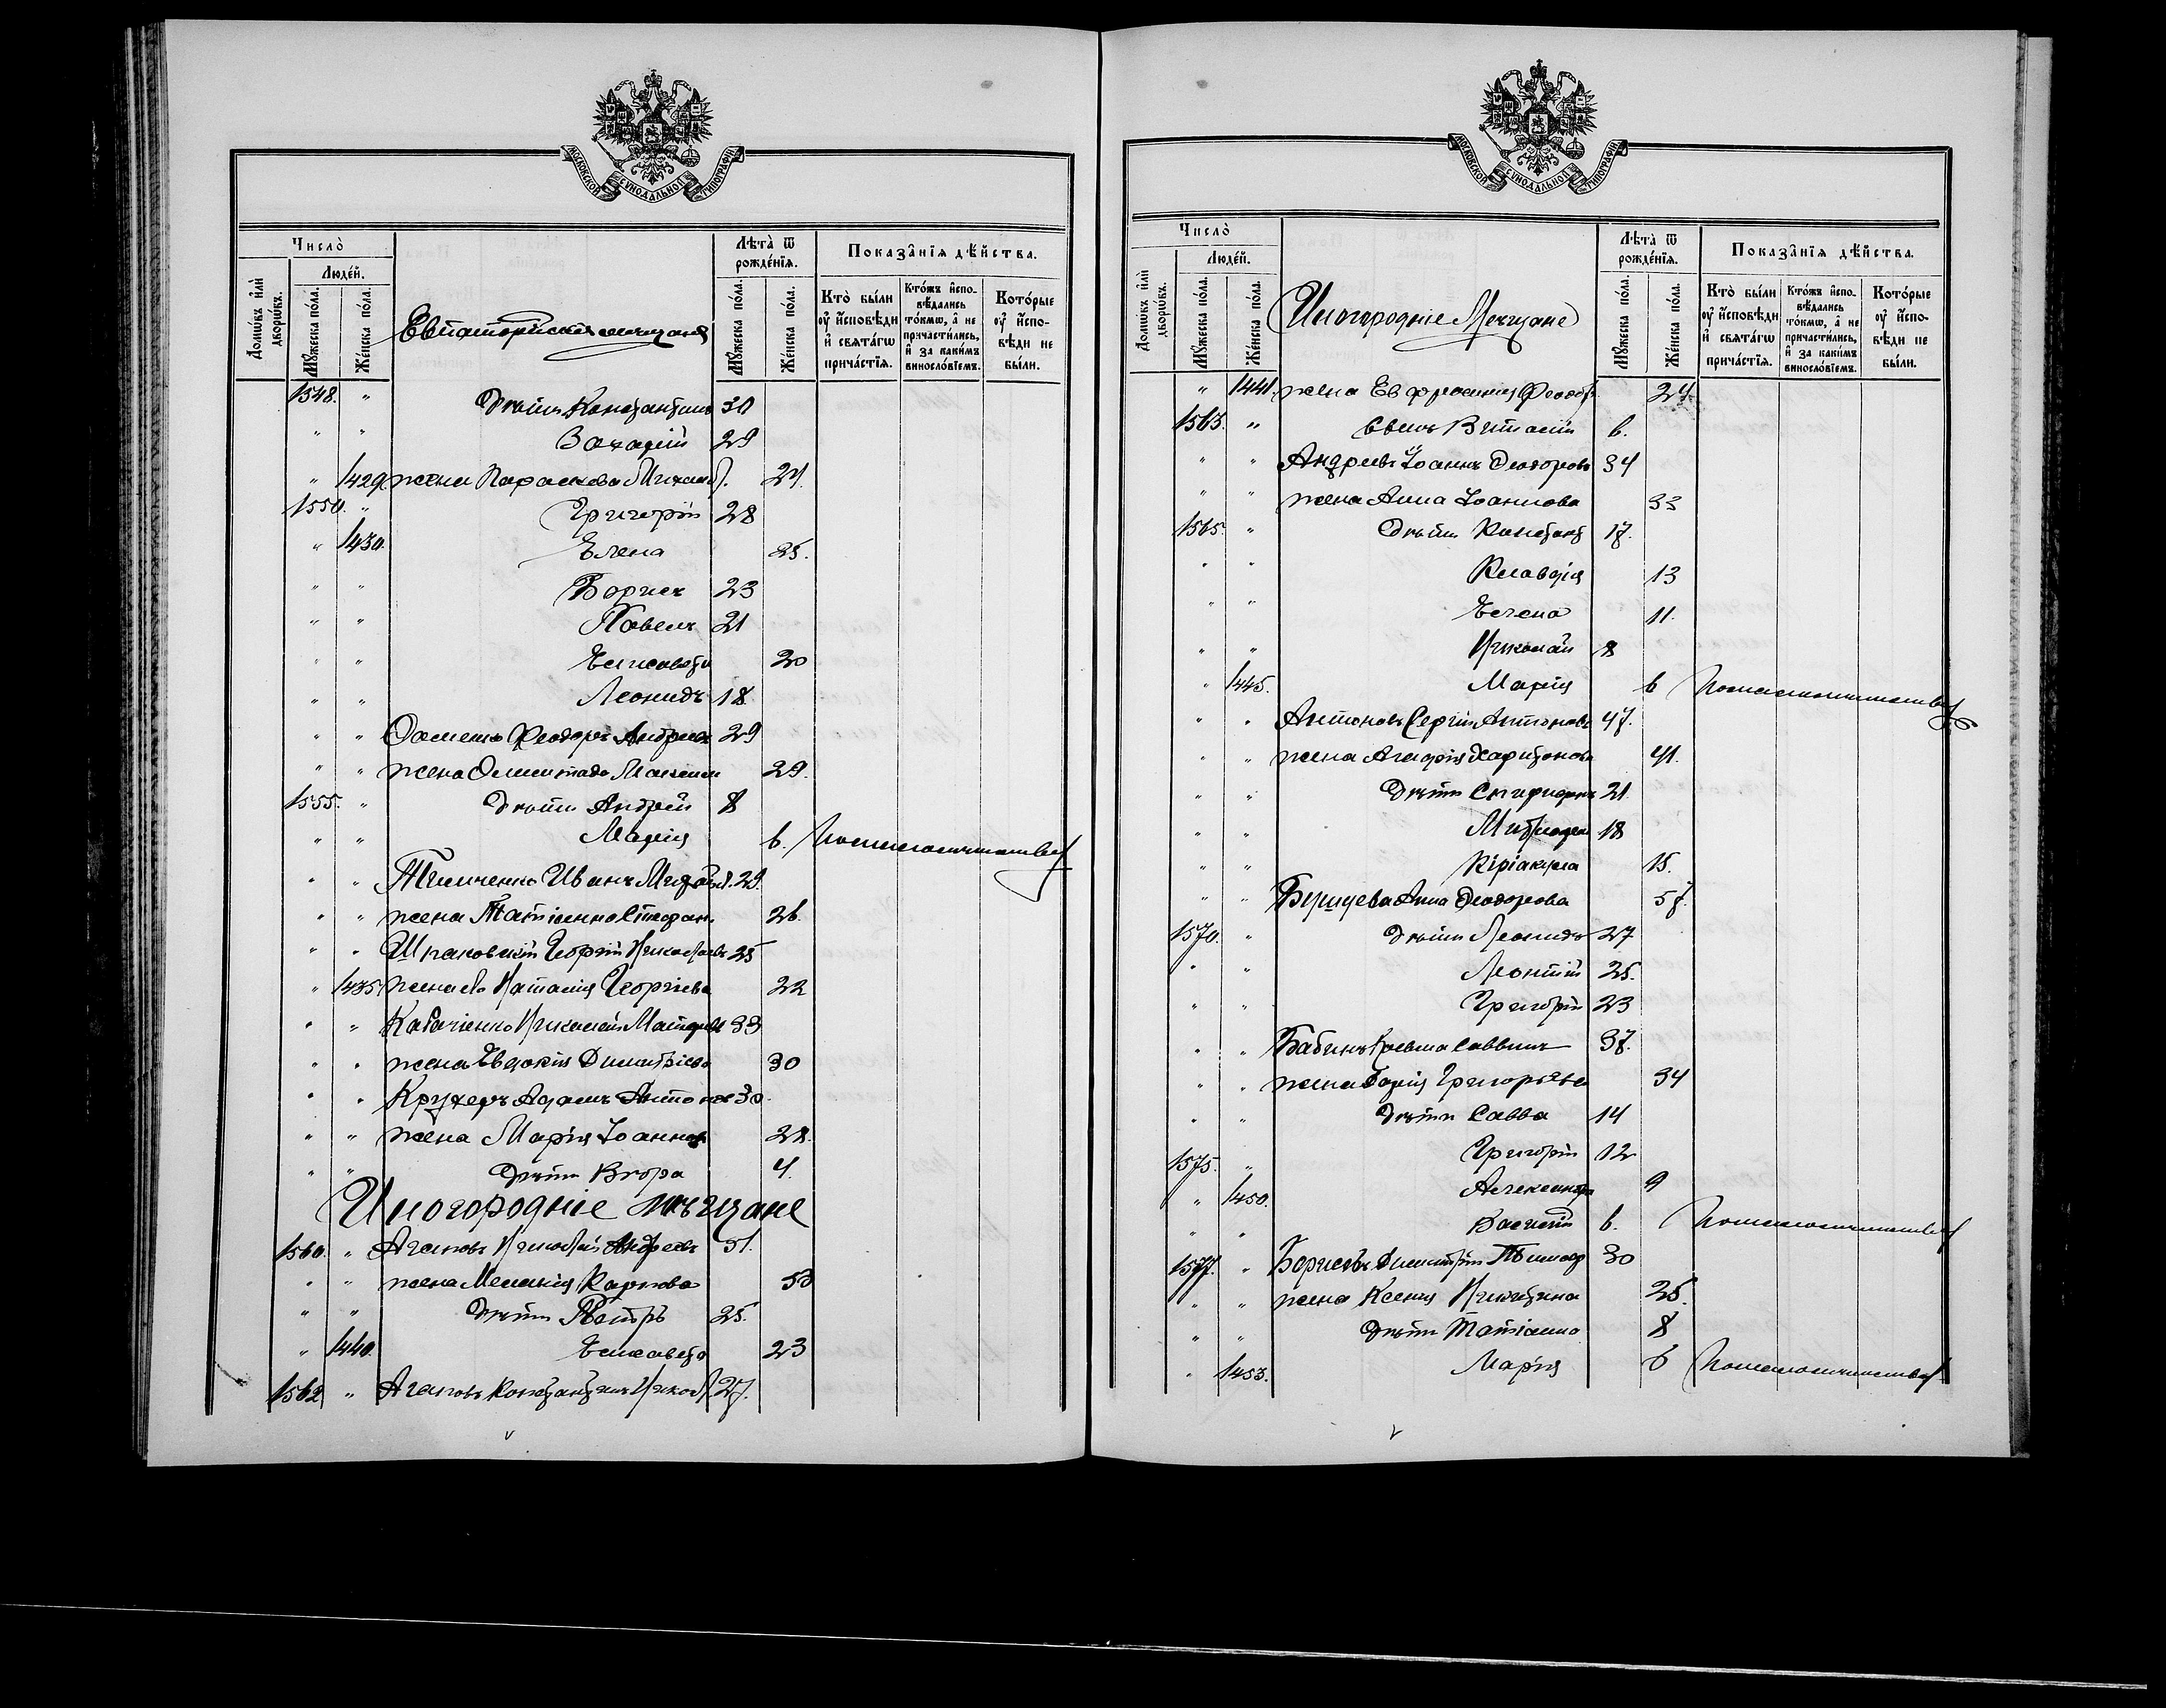 МОСКОВСКОЙ СѴНОДАЛЬНОЙ ТИПОГРАФІИ
Число̀
Людей.
Домѡвъ и҆лѝ дворѡвъ.
Мꙋжеска по́ла.
Же́нска по́ла.
Евпаторійскія мещане
Лѣта̀ ѿ рожде́нїѧ.
Мꙋжеска по́ла.
Же́нска по́ла.
Показа̑нїѧ дѣ́йства.
Кто̀ бы́ли оу҆ и҆сповѣ́ди и҆ свѧта́гѡ прича́стїѧ.
Кто́жъ и҆спо-вѣ́дались то́кмѡ, а҆ не причасти́лись, и҆ за каки́мъ винослові́емъ.
Кото́рые оу҆ и҆спо-вѣ́ди не бы́ли.
1548. " дѣти Константинъ 30
" " Захарій 29
" 1429. жена Параскева Михаил. 24.
1550. " Григорій 28
" 1430. Елена 25.
" " Борисъ 23
" " Павелъ 21
" " Елисавета 20
" " Леонидъ 18
" " Феодоръ Андреев 29
" " жена Максим 29.
1555. " дѣти Андрей 8
" " Марія 6. по малолѣтству
" " Тимченко Иванъ Михайл. 29.
" " жена Татіанна Стефан. 26.
" " Шпаковскій Георгій Николаевъ 25
" 1435. жена его Наталія Георгіева 22
" " Николай Матфеев 33
" " жена Евдокія Димитріева 30
" " Адамъ Антонов 30.
" " жена Марія Іоаннов 28.
" " дѣти Вѣра 4.
Иногородніе мѣщане
1560. " Агаповъ Николай Андреевъ 51.
" " жена Меланія Карпова 50
" " дѣти Петръ 25.
" 1440. Елисавета 23
1562 " Агаповъ Константинъ Никол. 27.
МОСКОВСКОЙ СѴНОДАЛЬНОЙ ТИПОГРАФІИ
Число̀
Людей.
Домѡвъ и҆лѝ дворѡвъ.
Мꙋжеска по́ла.
Же́нска по́ла.
Иногородніе Мещане
Лѣта̀ ѿ рожде́нїѧ.
Мꙋжеска пола
Же́нска по́ла.
Показа̑нїѧ дѣ́йства.
Кто̀ бы́ли оу҆ и҆сповѣ́ди и҆ свѧта́гѡ прича́стїѧ.
Кто́жъ и҆спо-вѣ́дались то́кмѡ, а҆ не причасти́лись, и҆ за каки́мъ винослові́емъ.
Кото́рые оу҆ и҆спо-вѣ́ди не бы́ли.
" 1441. жена Евфросинія Феодор 24
1563. " сынъ Виталій 6.
" " Андреевъ Іоаннъ Феодоровъ 34
" " жена Анна Іоаннова 33
1565. " дѣти Констант 17.
" " Клавдія 13
" " Елена 11.
" " Николай 8
" 1445. Марія 6 по малолѣтству
" " Антоновъ Сергій Антоновъ 47.
" " жена Агафія Харитонова 41.
" " дѣти Спиридонъ 21.
" " 18
" " Киріакія 15.
" " Анна Феодорова 57.
1570. " дѣти Леонидъ 27
" " Леонтій 25.
" " Григорій 23
" " Бабинъ Косьма Саввинъ 37.
" " жена Григорьева 34
" " дѣти Савва 14
1575. " Григорій 12
" 1450. Александра 9
" " Василій 6. по малолѣтству
1577. " Борисовъ Димитрій Тимоф 30
" " жена Ксенія Никитина 25.
" " дѣти Татіанна 8
" 1453. Марія 6 по малолѣтству